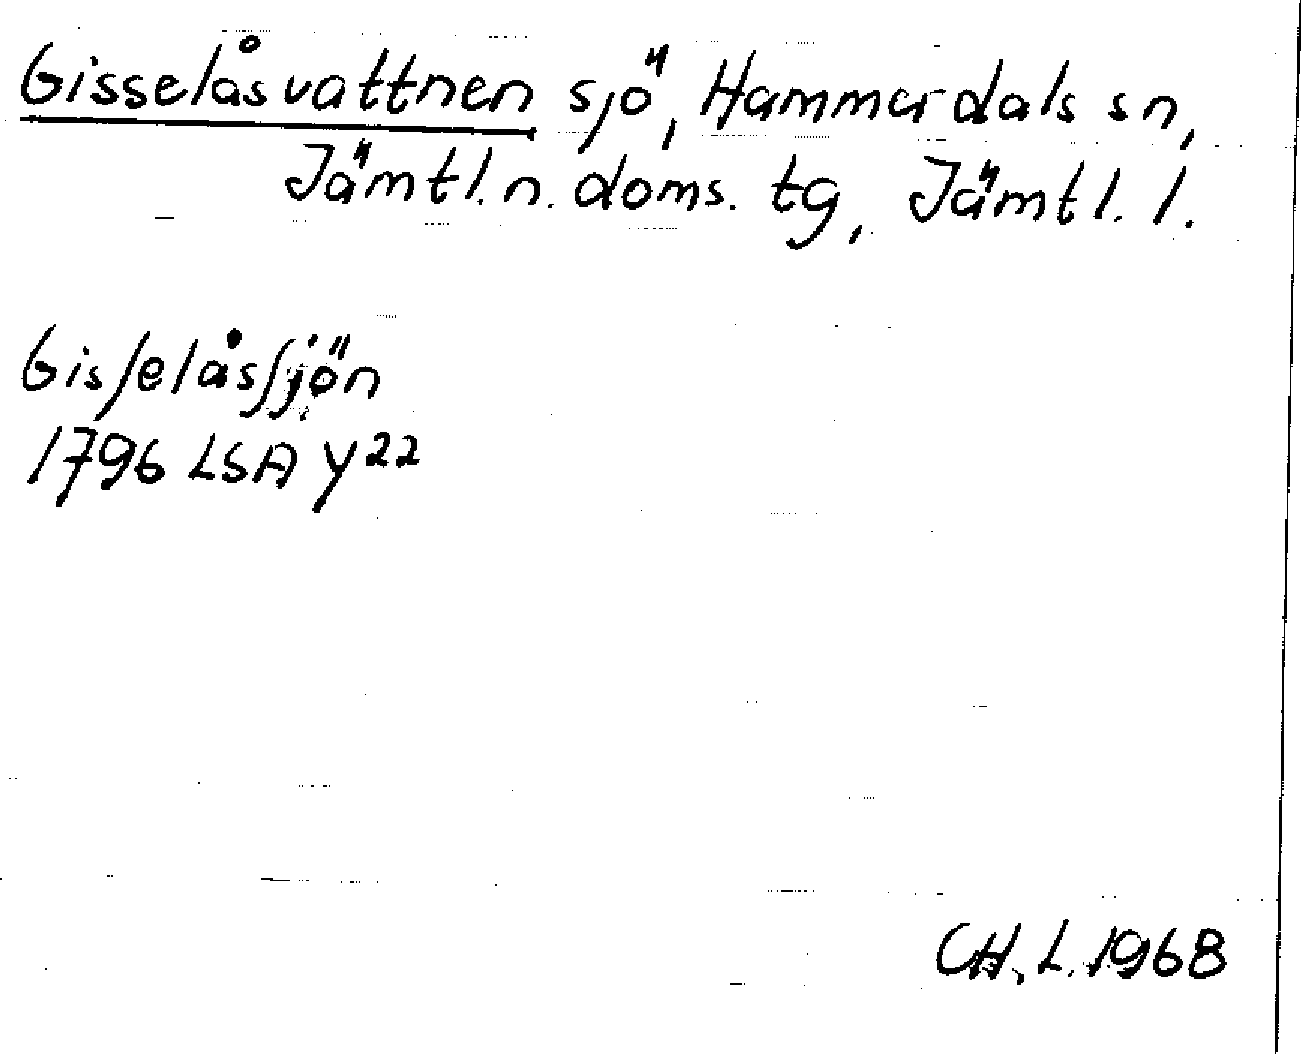 Gisselåsvattnen sjö, Hammerdals sn,
Jämtl. n. doms. tg, Jämtl. l.
Gisſelåsſjön
1796 LSA Y22
CH. L. 1968